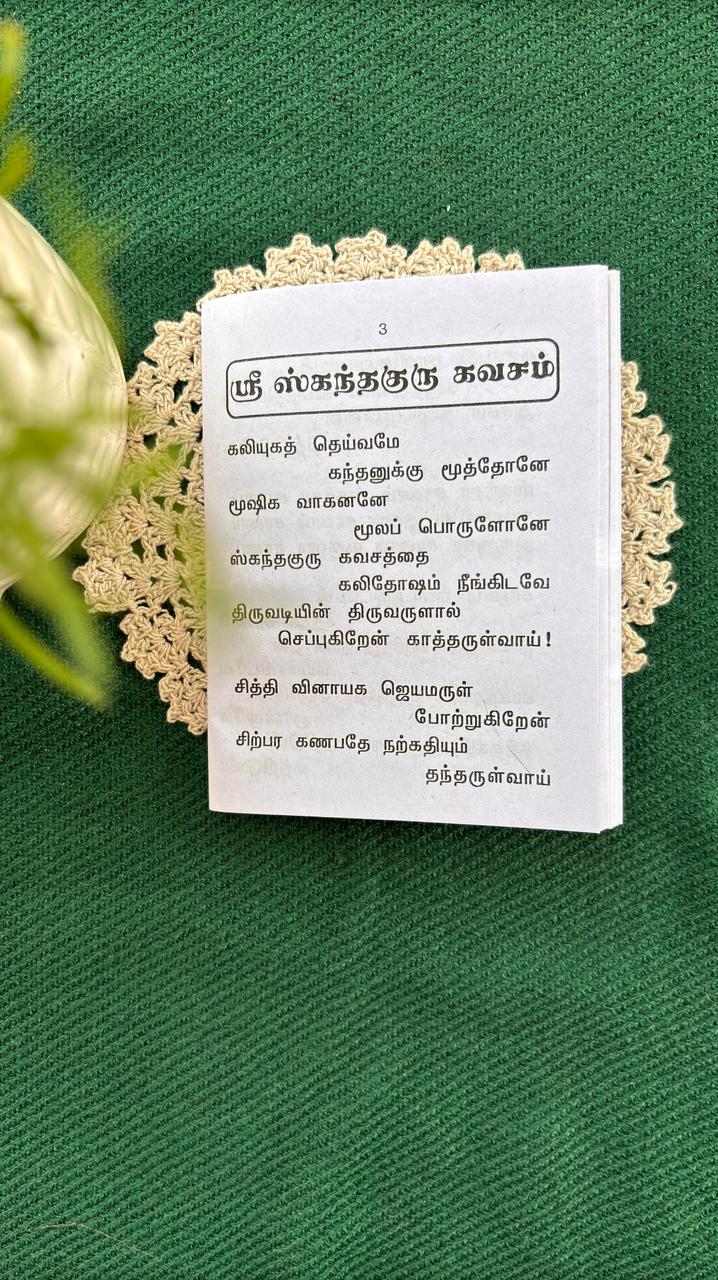 3
ஸ்ரீ ஸ்கந்தகுரு கவசம்
கலியுகத் தெய்வமே
கந்தனுக்கு மூத்தோனே
மூஷிக வாகனனே
மூலப் பொருளோனே
ஸ்கந்தகுரு கவசத்தை
கலிதோஷம் நீங்கிடவே
திருவடியின் திருவருளால்
செப்புகிறேன் காத்தருள்வாய்!
சித்தி வினாயக ஜெயமருள்
போற்றுகிறேன்
சிற்பர கணபதே நற்கதியும்
தந்தருள்வாய்